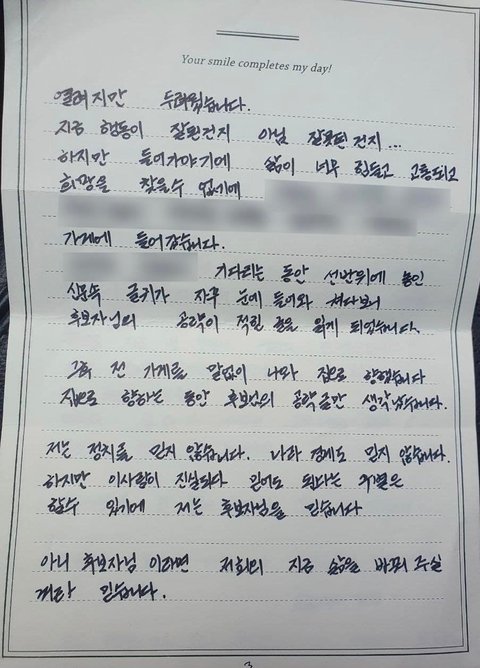 Your smile completes my day!
두려웠습니다.
지금 행동이 잘된건지 아님 잘못된건지...
하지만 들어가야기에 삶이 너무 힘들고 고통되고
희망을 찾을수 없기에
가게에 들어갔습니다.
기다리는 동안 선반위에 놓인
신문속 글귀가 자꾸 눈에 들어와 쳐다보니
후보자님의 공략이 적힌 글을 읽게 되었습니다.
그후 전 가게를 말없이 나와 집으로 향했습니다
집으로 향하는 동안 후보님의 공략글만 생각났습니다.
저는 정치를 믿지 않습니다. 나라 경제도 믿지 않습니다.
하지만 이사람이 진실되다 믿어도 된다는
할수 있기에 저는 후보자님을 믿습니다
아니 후보자님 이라면 저희의 지금 삶을 바꿔 주실
거라 믿습니다.
3